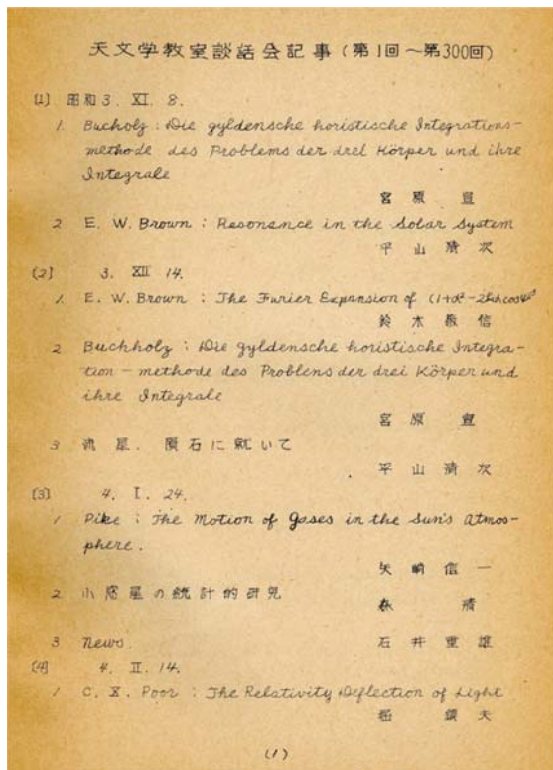 天文学教室談話会記事(第1回〜第300回)
[1] 昭和3. XI. 8.
1. Bucholz : Die gyldensche horistische Integrations-
methode des Problems der drei Körper und ihre
Integrale
宮原 宣
2 E. W. Brown : Resonance in the Solar System
平山清次
[2] 3. XII 14.
1. E. W. Brown : The Furier Expansion of
鈴木敬信
2 Buchholz : Die gyldensche horistische Integra-
tion - methode des Problens der drei Körper und
ihre Integrale
宮原 宣
3 流星. 隕石に就いて
平山清次
[3] 4. I. 24.
1 Pike : The Motion of Gases in the Sun's Atmos-
phere.
矢崎信一
2 小惑星の統計的研究
清
3 News
石井重雄
[4] 4. II. 14.
1 C. X. Poor : The Relativity Deflection of Light
堀 鎮夫
(1)